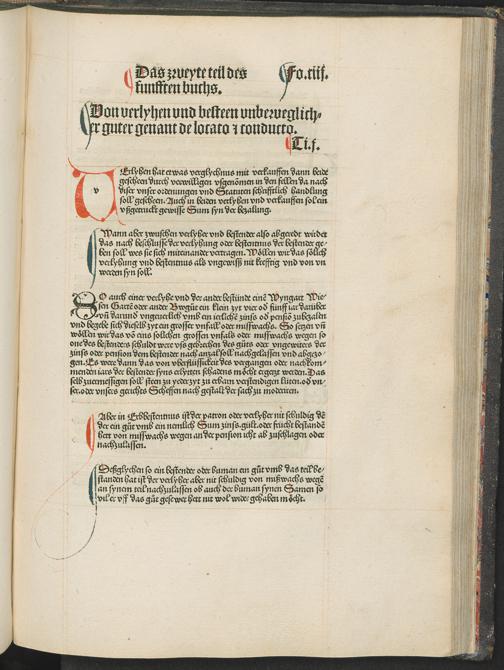 Das zweyte teil des
funfften buchs.
Fo.ciij.
Von verlyhen vnd besteen vnbeweglich⸗
er guter genant de locato ⁊ conducto.
Ti.j.
VErlyhen hat etwas verglychnus mit verkauffen dann beide
gescheen durch verwilligen vßgenomen in den fellen da nach
diser vnser ordenungen vnd Statuten schrifftlich handlung
soll gescheen. Auch in beiden verlyhen vnd verkauffen sol ein
vßgetruckt gewisse Sum syn der bezalung.
Wann aber zwuschen verlyher vnd bestender also abgeredt wirdet
das nach beschlusse der verlyhung oder bestentnus der bestender ge⸗
ben soll wes sie sich miteinander vertragen. Wöllen wir das solich
verlyhung vnd bestentnus als vngewiß nit krefftig vnd von vn
werden syn soll.
SO auch einer verlyhe vnd der ander bestünde einē Wyngart Wie⸗
sen Gartē oder ander Buwgüt ein klein zyt vier od funff iar darüber
vñ darund vngeuerlich vmb ein ierliche zinß od pensiō zubezaln
vnd begebe sich dieselb zyt ein grosser vnfall oder misswachs. So setzen vñ
wöllen wir das vō eins solichen grossen vnfals oder misswachs wegen so
one des bestenders schuld were vß gebrechen des güts oder vngewiters der
zinß oder pension dem bestender nach anzal soll nachgelassen vnd abgezo⸗
gen. Es were dann das von überflüssickeit des vergangen oder nachkom⸗
menden iars der bestender syns erlytten schadens möcht ergetzt werden. Das
selb zuermessigen soll steen zu yeder zyt zu erbarn verstendigen lüten. od vn⸗
ser. oder vnsers gerichts Scheffen nach gestalt der sach zu moderirn.
Aber in Erbbestentnus ist der patron oder verlyher nit schuldig dē
der ein güt vmb ein nemlich Sum zinß. gült. oder frücht bestandē
hett von misswachs wegen an der pension icht ab zuschlagen oder
nachzulassen.
Deßglychen so ein bestender oder buman ein güt vmb das teil be⸗
standen hat ist der verlyher aber nit schuldig von mißwachs wegē
an synem teil nachzulassen ob auch der buman synen Samen so
vil er vff das güt gesewet hett nit wol wider gehaben möcht.